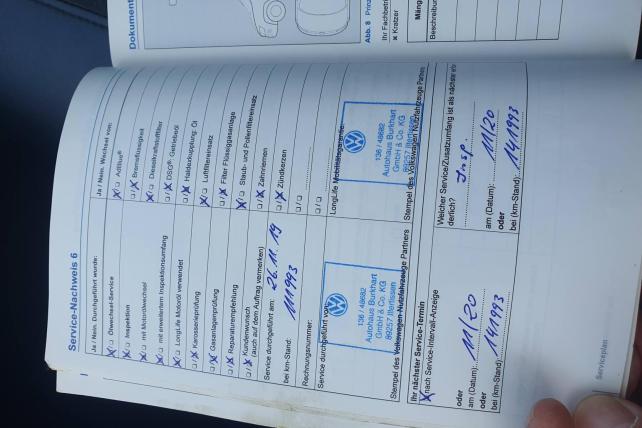 Service-Nachweis 6
Ja / Nein. Durchgeführt wurde:
X/❏ Ölwechsel-Service
X/❏ Inspektion
X/❏ mit Motorölwechsel
X/❏ mit erweitertem Inspektionsumfang
X/❏ LongLife Motoröl verwendet
❏/X Karosserieprüfung
❏/X Gasanlagenprüfung
❏/X Reparaturempfehlung
❏/X Kundenwunsch
(auch auf dem Auftrag vermerken)
Service durchgeführt am: 26.11.19
bei km-Stand: 111993
Rechnungsnummer:
Service durchgeführt von:
136 / 48682
Autohaus Burkhart
GmbH & Co. KG
89257 Illertissen
Stempel des Volkswagen Nutzfahrzeuge Partners
Ja / Nein. Wechsel von:
X/❏ AdBlue®
❏/X Bremsflüssigkeit
X/❏ Dieselkraftstofffilter
❏/X DSG®-Getriebeöl
❏/X Haldexkupplung: Öl
X/❏ Luftfiltereinsatz
❏/X Filter Flüssiggasanlage
X/❏ Staub- und Pollenfiltereinsatz
❏/X Zahnriemen
❏/X Zündkerzen
❏/❏
❏/❏
LongLife Mobilitätsgarantie:
136 / 48682
Autohaus Burkhart
GmbH & Co. KG
89257 Illertissen
Stempel des Volkswagen Nutzfahrzeuge Partners
Ihr nächster Service-Termin
X nach Service-Intervall-Anzeige
oder
am (Datum): 11/20
oder
bei (km-Stand): 141993
Welcher Service/Zusatzumfang ist als nächster
derlich? Insp.
am (Datum): 11/20
oder
bei (km-Stand): 141993
Serviceplan
Dokument
Abb. 8
Ihr Fachbetri
× Kratzer
Mäng
Beschreibun